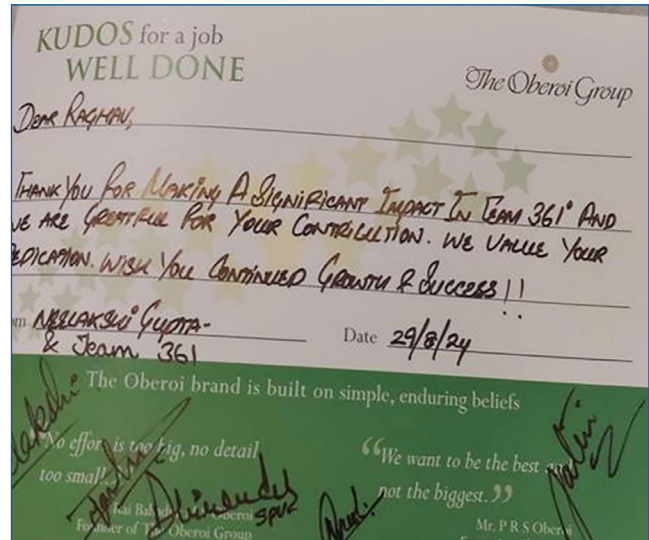 KUDOS for a job
WELL DONE
The Oberoi Group
DEAR RAGHAV,
THANK YOU FOR MAKING A SIGNIFICANT IMPACT IN TEAM 361° AND
WE ARE GREATFUL FOR YOUR CONTRIBUTION. WE VALUE YOUR
DEDICATION. WISH YOU CONTINUED GROWTH & SUCCESS!!
om NEELAKSHI GUPTA-
& Team 361
Date 29/8/24
The Oberoi brand is built on simple, enduring beliefs
No effort is too big, no detail
too small.
Rai Bahadur Oberoi
Founder of The Oberoi Group
“We want to be the best and
not the biggest.”
Mr. P R S Oberoi